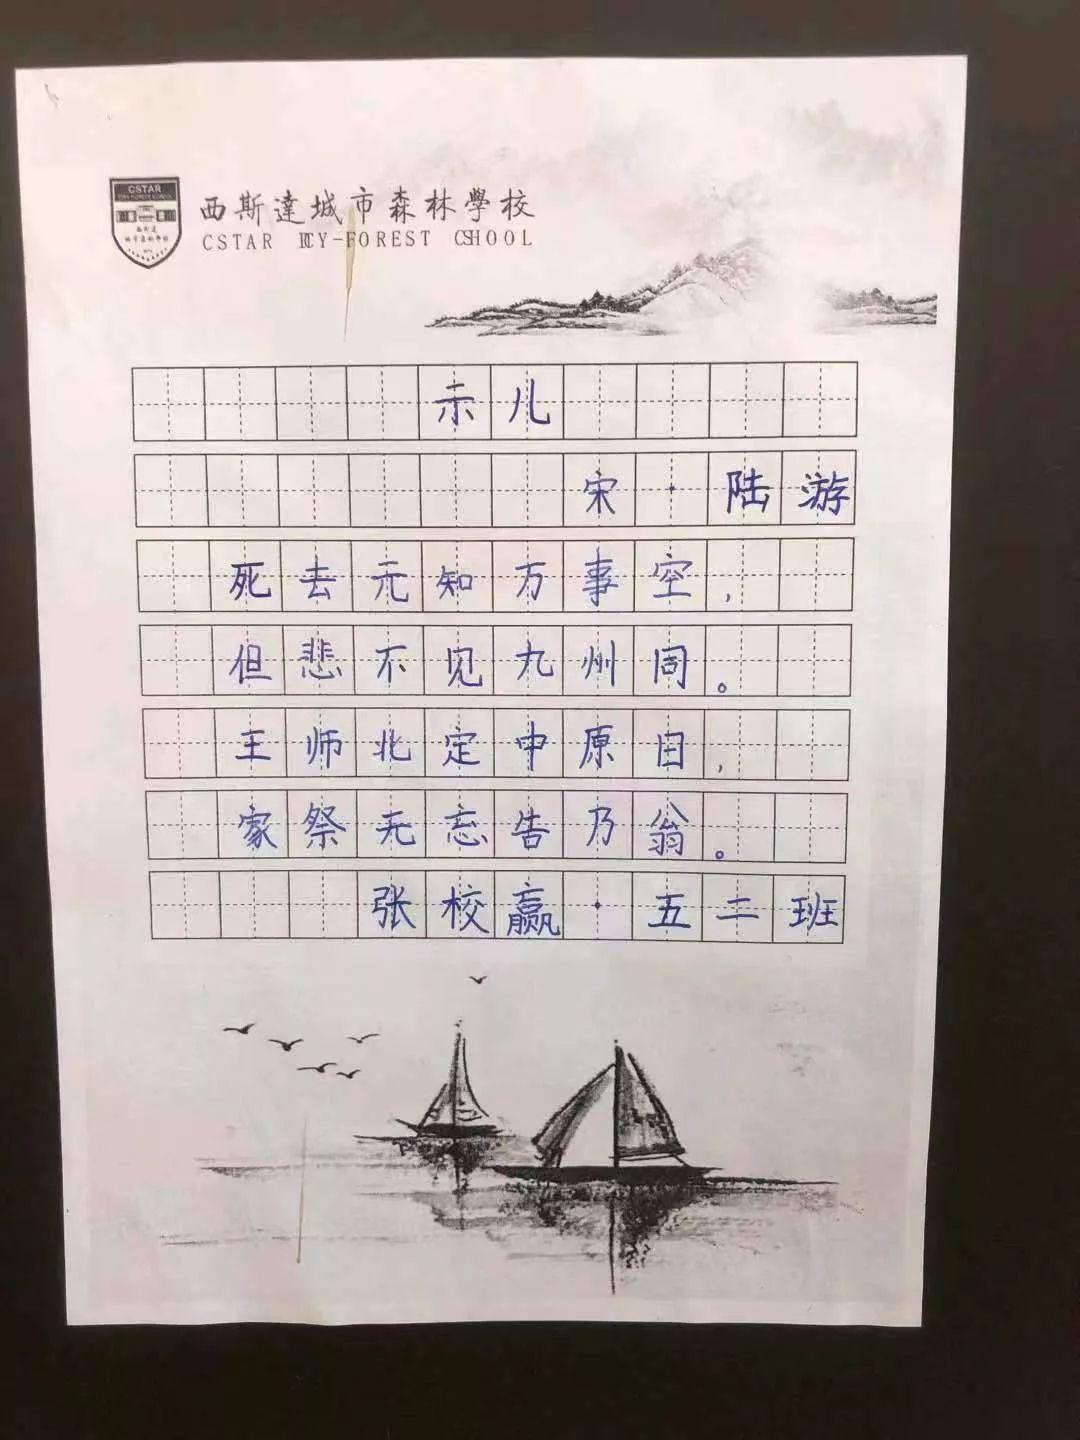 CSTAR
西斯達城市森林學校
CSTAR ICY-FOREST CSHOOL
示儿
宋·陆游
死去元知万事空，
但悲不见九州同。
王师北定中原日，
家祭无忘告乃翁。
张校赢·五二班